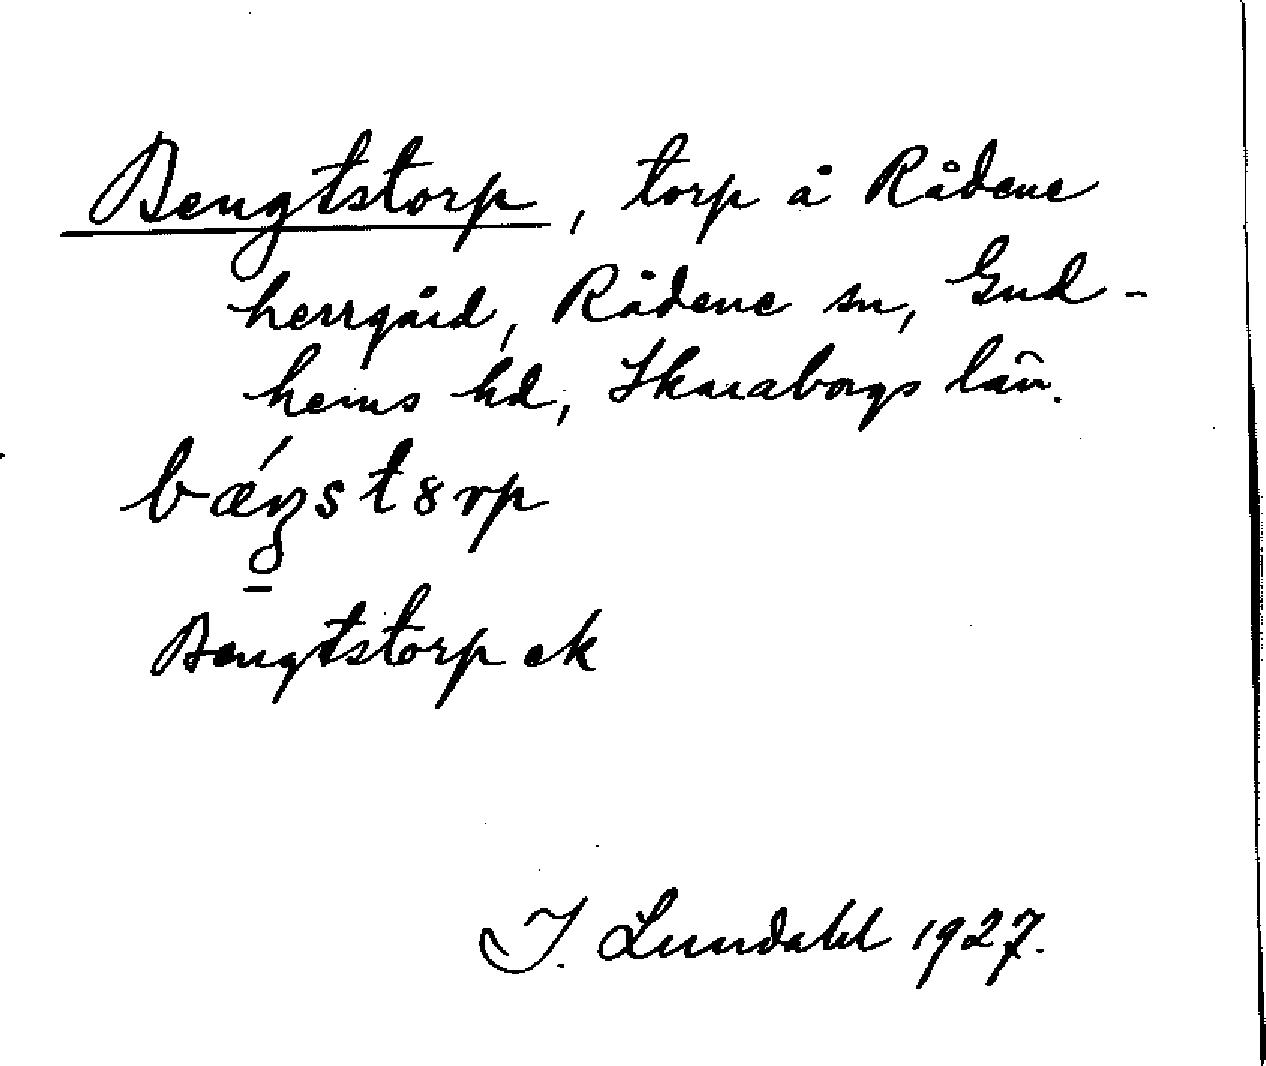 Bengtstorp, torp å Rådene
herrgård, Rådene sn, Gud-
hems hd, Skaraborgs län.
bǽŋstorp
Bengtstorp ek
I. Lundahl 1927.